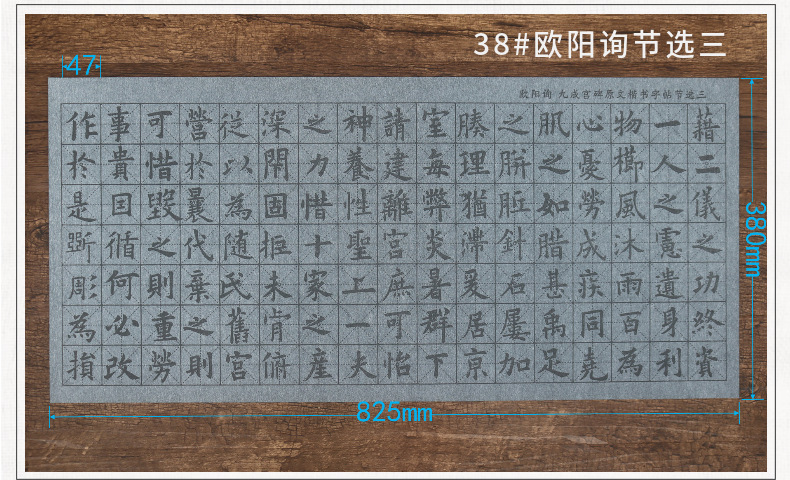 38#欧阳询节选三
47
欧阳询 九成宫碑原文楷书字帖节选三
藉二儀之功終資
一人之慮遺身利
物櫛風沐雨百為
心憂勞成疾同堯
肌之如腊甚禹足
之胼胝針石屢加
腠理猶滯爰居京
室每弊炎暑群下
請建離宮庶可怡
神養性聖上一夫
之力惜十家之産
深閇固拒未肯俯
從以為随氏舊宮
營於曩代棄之則
可惜毀之則重勞
事貴囙循何必改
作於是斲彫為損
380mm
825mm